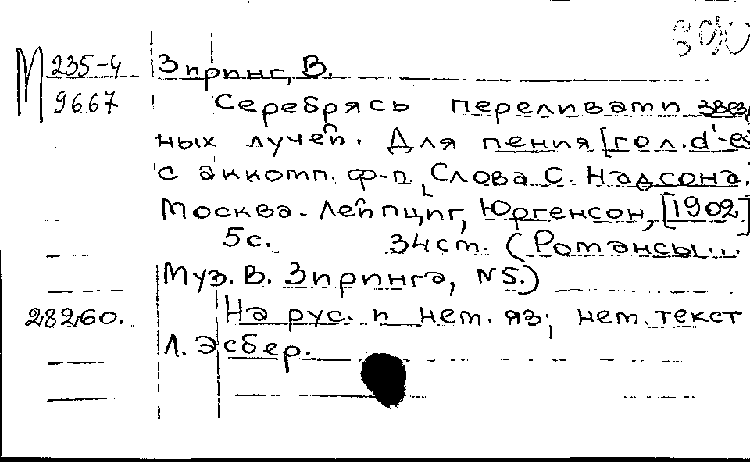 М 235-4 Зиринг, В.
9667 Серебрясь переливами звез
ных лучей. Для пения [гол. d'-es
с аккомп. ф-п, Слова С. Надсона.
Москва-Лейпциг, Юргенсон, [1902]
5с. 34см. (Романсы...
Муз. В. Зиринга, №5.)
28260. На рус. и нем. яз; нем. текст
Л. Эсбер.